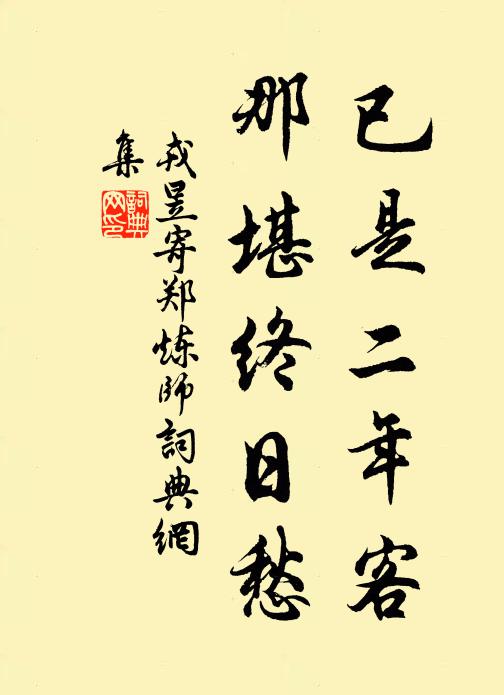 已是二年客
那堪終日愁
戎昱寄郑炼師詞典網
集
詞典
网印